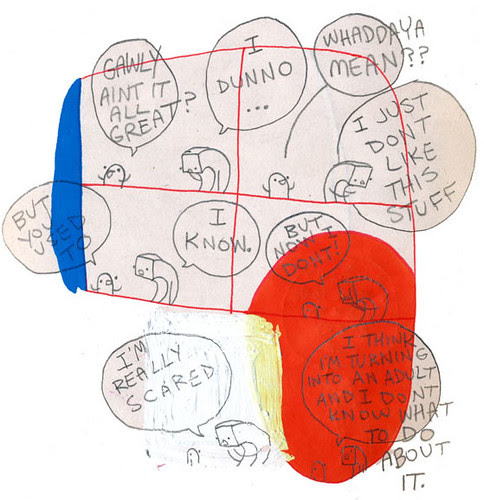 GAWLY
AINT IT
ALL
GREAT?
I
DUNNO
...
WHADDAYA
MEAN??
I JUST
DONT
LIKE
THIS
STUFF
BUT
YOU
USED
TO
I
KNOW.
BUT
NOW I
DONT!
I'M
REALLY
SCARED
I THINK
I'M TURNING
INTO AN ADULT
AND I DONT
KNOW WHAT
TO DO
ABOUT
IT.